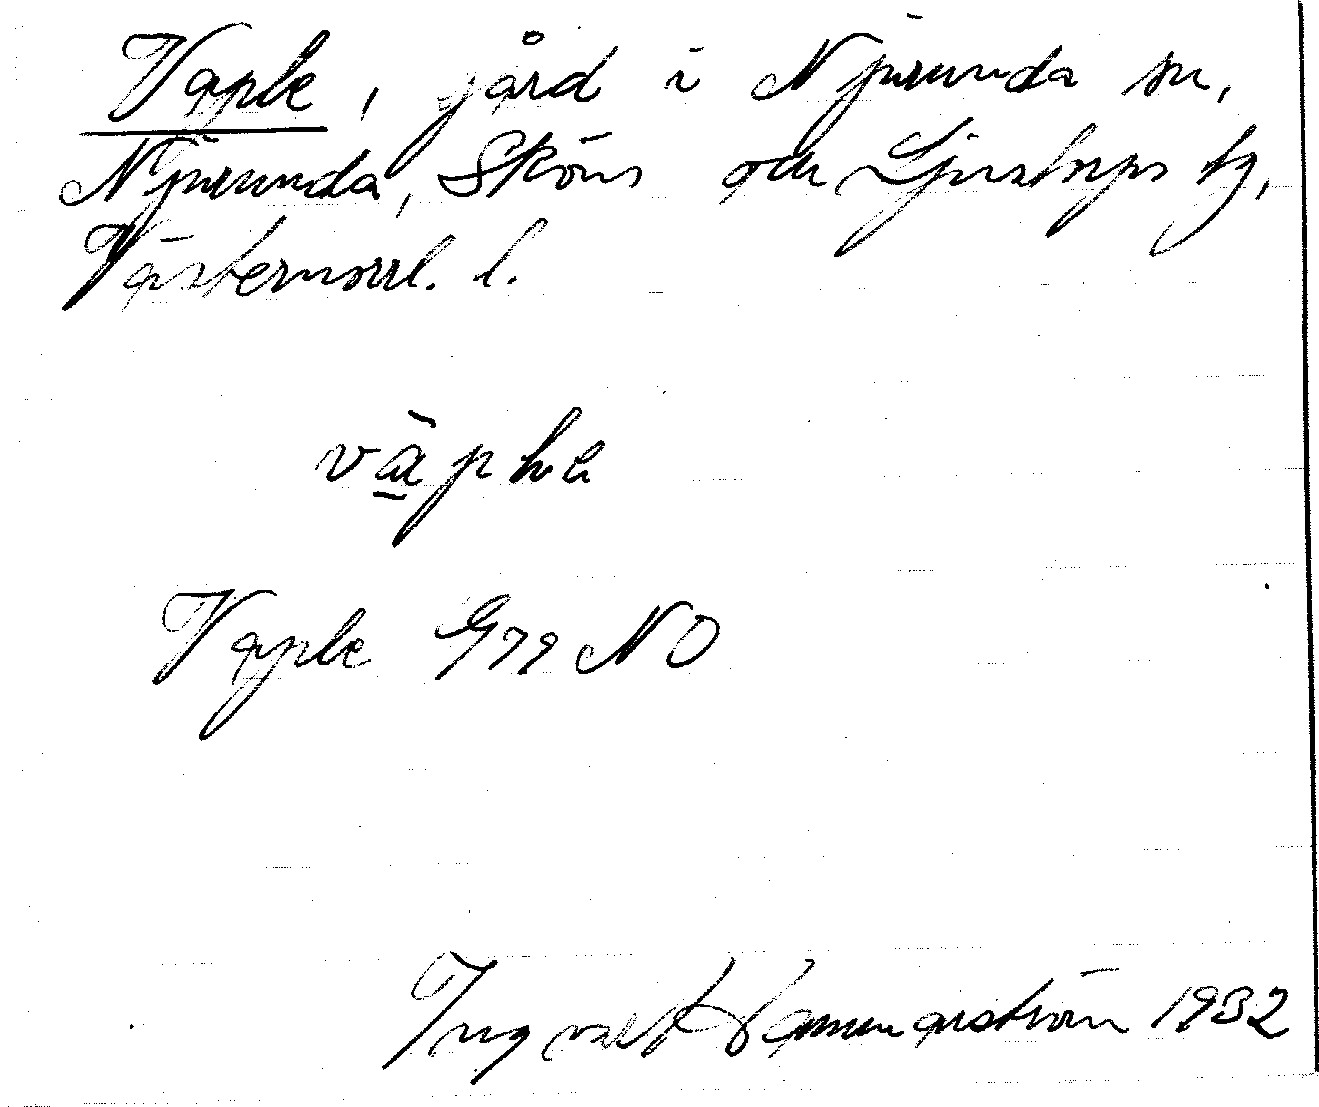 Vaple, gård i Njurunda sn,
Njurunda, Sköns och Ljustorps tg,
Västernorrl. l.
väphe
Vaple G79 NO
Ingvald Hammarström 1932